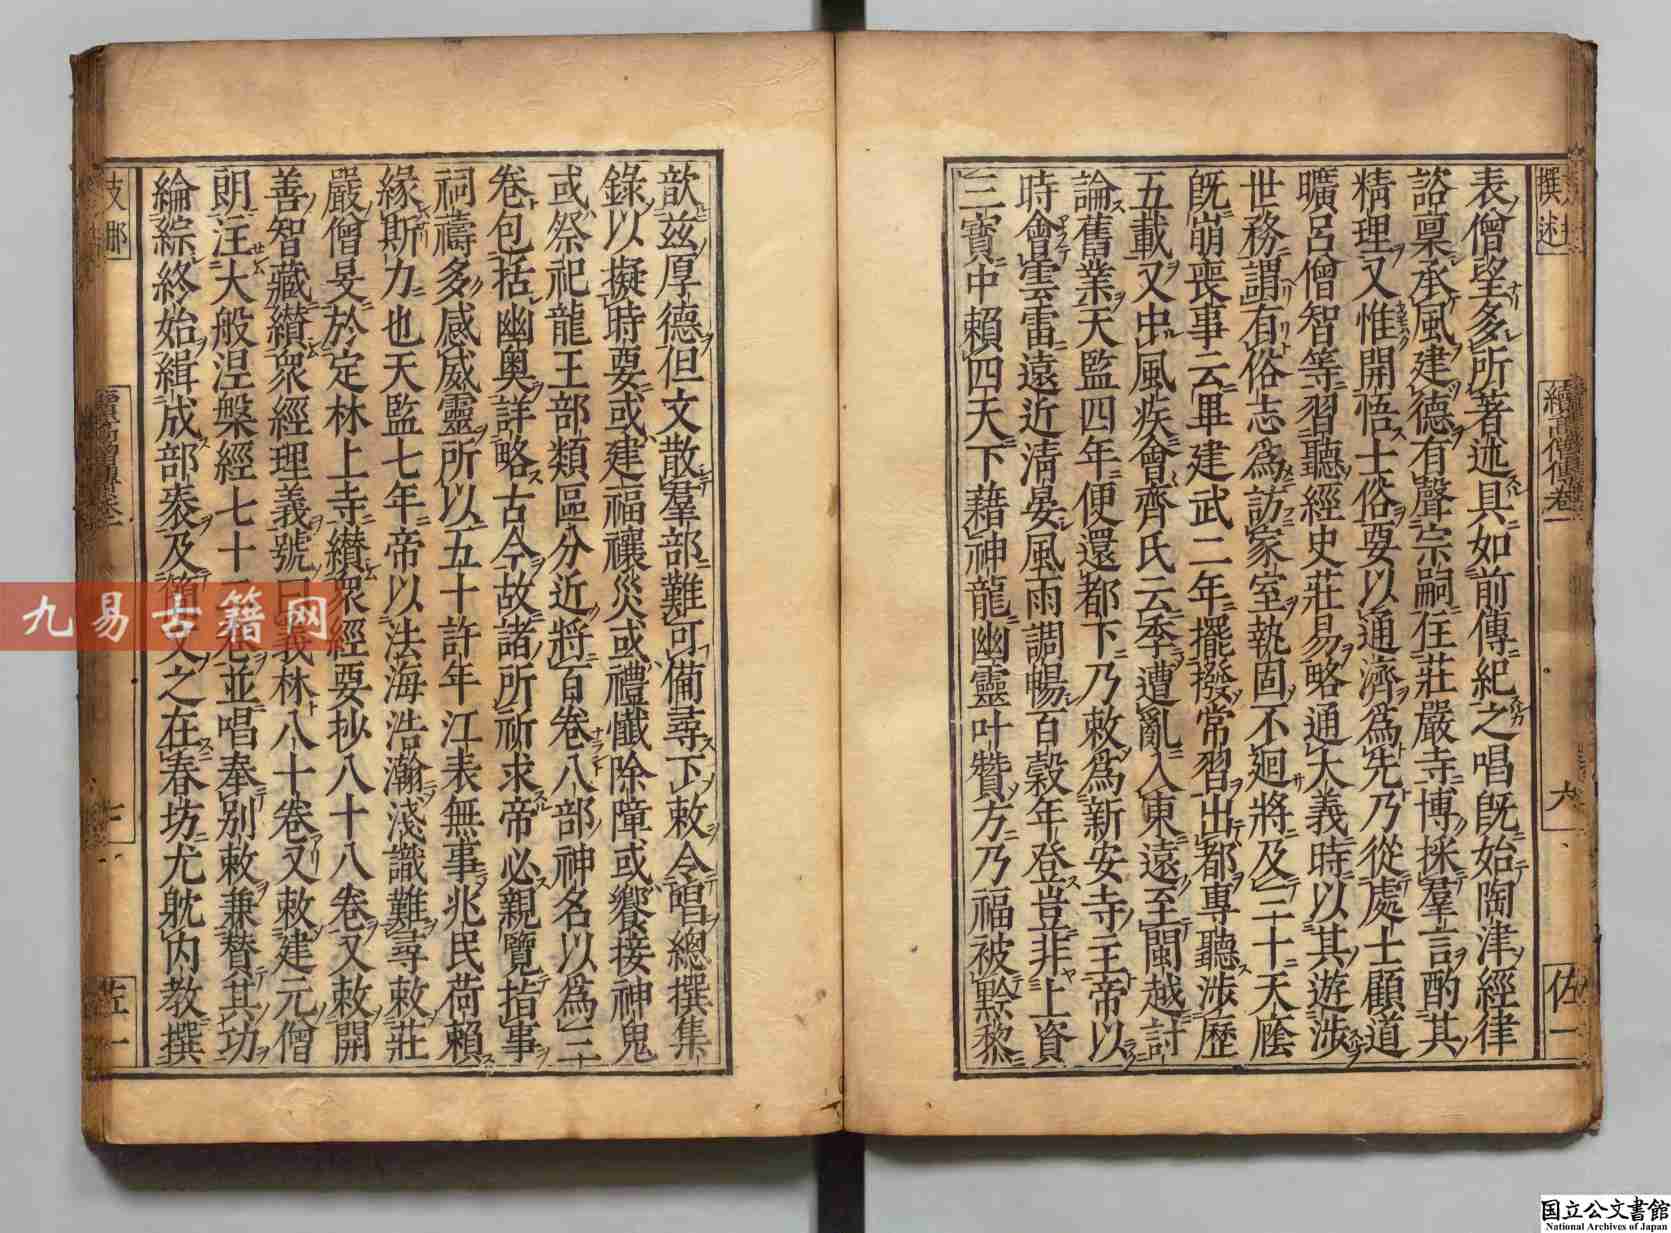 表僧望多所著述具如前傳紀之唱旣始陶津經律
諮稟承風建德有聲宗嗣住莊嚴寺博採羣言酌其
精理又惟開悟士俗要以通濟爲先乃從處士顧道
曠呂僧智等習聽經史莊易略通大義時以其遊涉
世務謂有俗志爲訪家室執固不迴將及三十天廕
旣崩喪事云畢建武二年擺撥常習出都專聽涉歷
五載又中風疾會齊氏云季遭亂入東遠至閩越討
論舊業天監四年便還都下乃敕爲新安寺主帝以
時會雲雷遠近清晏風雨調暢百穀年登豈非上資
三寶中賴四天下藉神龍幽靈叶贊方乃福被黔黎
撰述
續高僧傳卷一
六
佐一
歆兹厚德但文散羣部難可備尋下敕令唱總撰集
錄以擬時要或建福禳災或禮懺除障或饗接神鬼
或祭祀龍王部類區分近將百卷八部神名以爲三
卷包括幽奧詳略古今故諸所祈求帝必親覽指事
祠禱多感威靈所以五十許年江表無事兆民荷賴
緣斯力也天監七年帝以法海浩瀚淺識難尋敕莊
嚴僧旻於定林上寺纉衆經要抄八十八卷又敕開
善智藏纉衆經理義號曰義林八十卷又敕建元僧
朗注大般涅槃經七十二卷並唱奉別敕兼贊其功
綸綜終始緝成部袠及簡文之在春坊尤躭内教撰
支那
七
佐一
九易古籍网
国立公文書館
National Archives of Japan